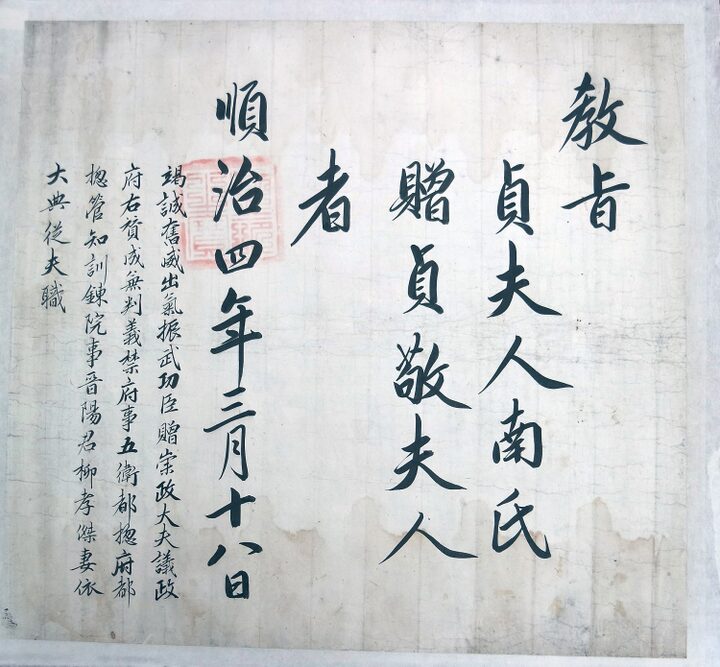 教旨
貞夫人南氏
贈貞敬夫人
者
順治四年三月十八日
竭誠奮威出氣振武功臣贈崇政大夫議政
府右贊成兼判義禁府事五衛都摠府都
摠管知訓鍊院事晉陽君柳孝傑妻依
大典從夫職